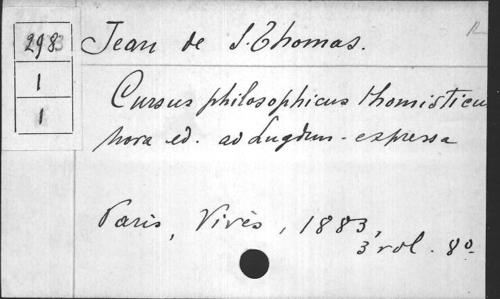 2983
1
1
Jean de S. Thomas.
Cursus philosophicus thomisticu
nova ed. ad Lugdun. expressa
Paris, Vivès, 1883,
3 vol. 8o.